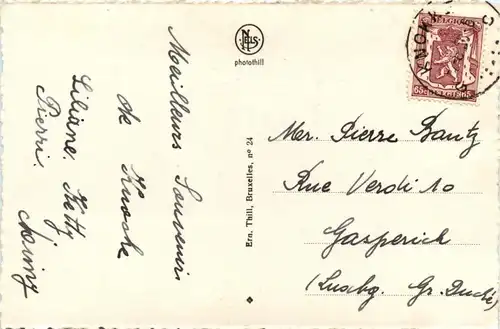 Meilleurs Souvenirs
de Knocke
Liliane. Ketty
Pierri.
NELS
photothill
Ern. Thill, Bruxelles, n° 24
KNOKKE
BELGIQUE
65c BELGIE 65
Mer. Pierre Bautz
Rue Verdi 10
Gasperich
(Luxbg. Gr. Duché)